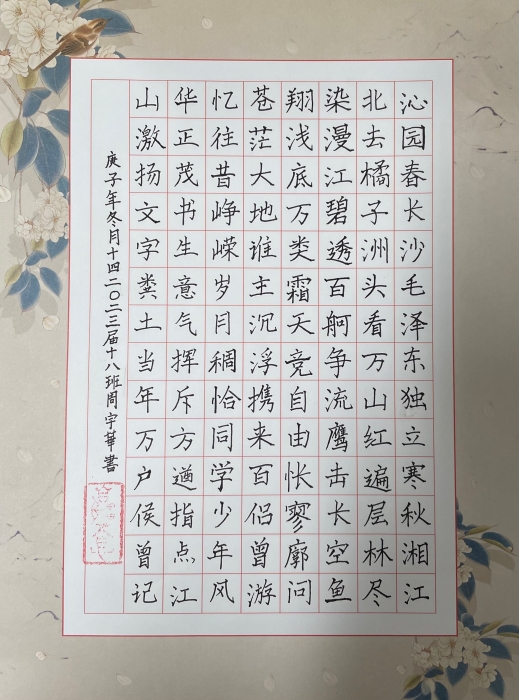 沁园春长沙毛泽东独立寒秋湘江
北去橘子洲头看万山红遍层林尽
染漫江碧透百舸争流鹰击长空鱼
翔浅底万类霜天竞自由怅寥廓问
苍茫大地谁主沉浮携来百侣曾游
忆往昔峥嵘岁月稠恰同学少年风
华正茂书生意气挥斥方遒指点江
山激扬文字粪土当年万户侯曾记
庚子年冬月十四二〇二三届十八班周宇華書